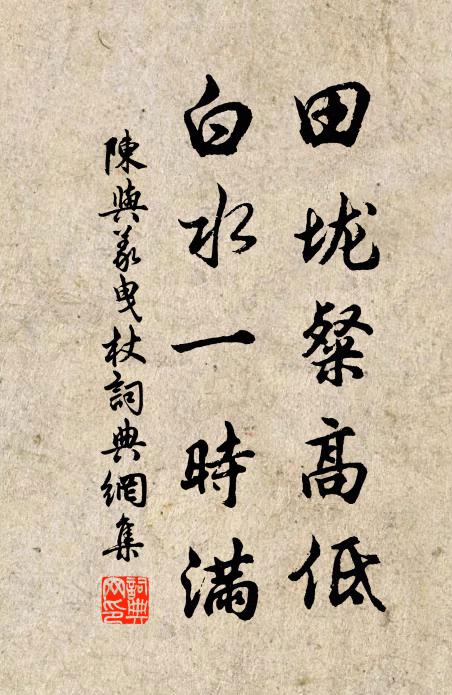 田垅粲高低
白水一時滿
陳與義曳杖詞典網集
詞典網印